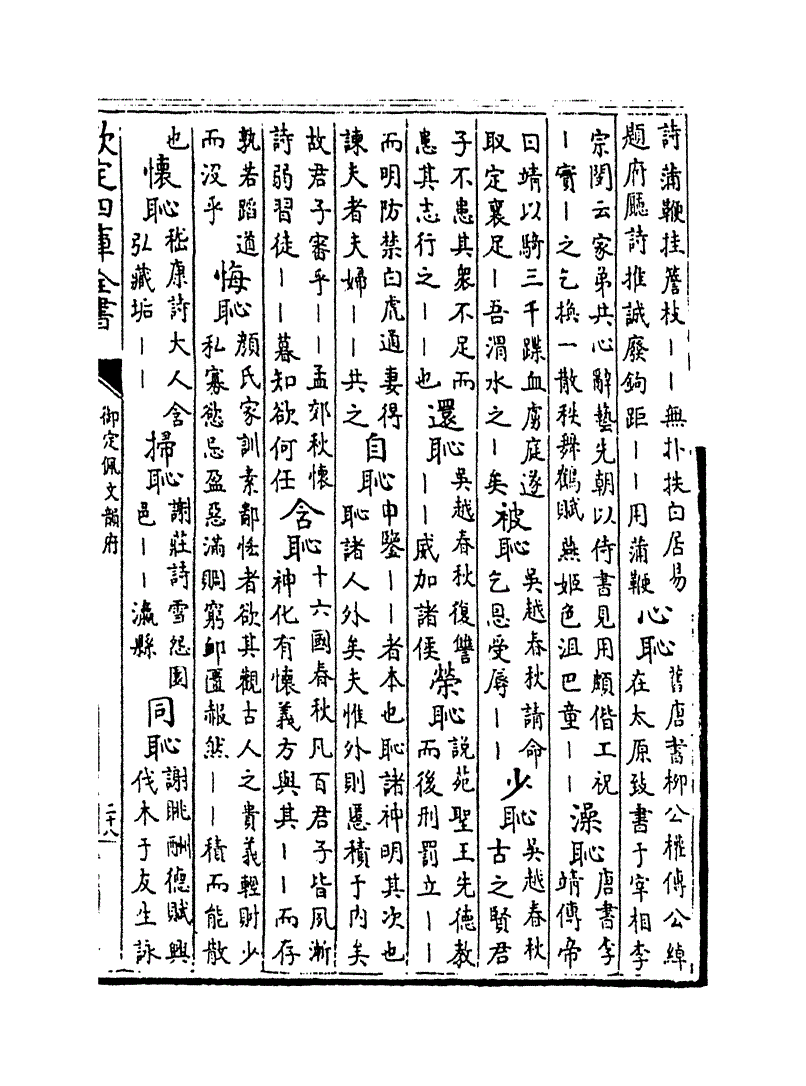 詩蒲鞭挂簷枝丨丨無扑抶白居易
題府廳詩推誠廢鉤距丨丨用蒲鞭
心恥
舊唐書柳公權傳公綽
在太原致書于宰相李
宗閔云家弟共心辭藝先朝以侍書見用頗偕工祝
丨實丨之乞換一散秩舞鶴賦燕姬色沮巴童丨丨
澡恥
唐書李
靖傳帝
曰靖以騎三千蹀血虜庭遂
取定襄足丨吾渭水之丨矣
被恥
吳越春秋請命
乞恩受辱丨丨
少恥
吳越春秋
古之賢君
子不患其衆不足而
患其志行之丨丨也
還恥
吳越春秋復讐
丨丨威加諸侯
榮恥
説苑聖王先德教
而後刑罰立丨丨
而明防禁白虎通妻得
諫夫者夫婦丨丨共之
自恥
申鑒丨丨者本也恥諸神明其次也
恥諸人外矣夫惟外則慝積于内矣
故君子審乎丨丨孟郊秋懷
詩弱習徒丨丨暮知欲何任
含恥
十六國春秋凡百君子皆夙漸
神化有懷義方與其丨丨而存
孰若蹈道
而没乎
悔恥
顔氏家訓素鄙恡者欲其觀古人之貴義輕財少
私寡慾忌盈惡滿賙窮卹匱赧然丨丨積而能散
也
懷恥
嵇康詩大人含
弘藏垢丨丨
掃恥
謝莊詩雪怨園
邑丨丨瀛縣
同恥
謝眺酬德賦興
伐木于友生詠
欽定四庫全書
御定佩文韻府
二十八